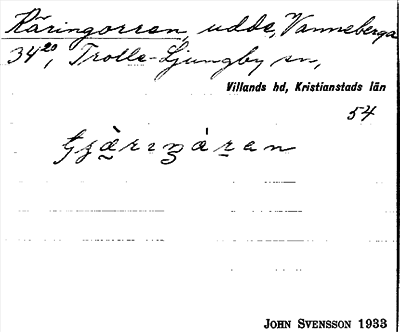 Käringorren, udde, Vanneberga
34²⁰, Trolle-Ljungby sn,
Villands hd, Kristianstads län
54
JOHN SVENSSON 1933